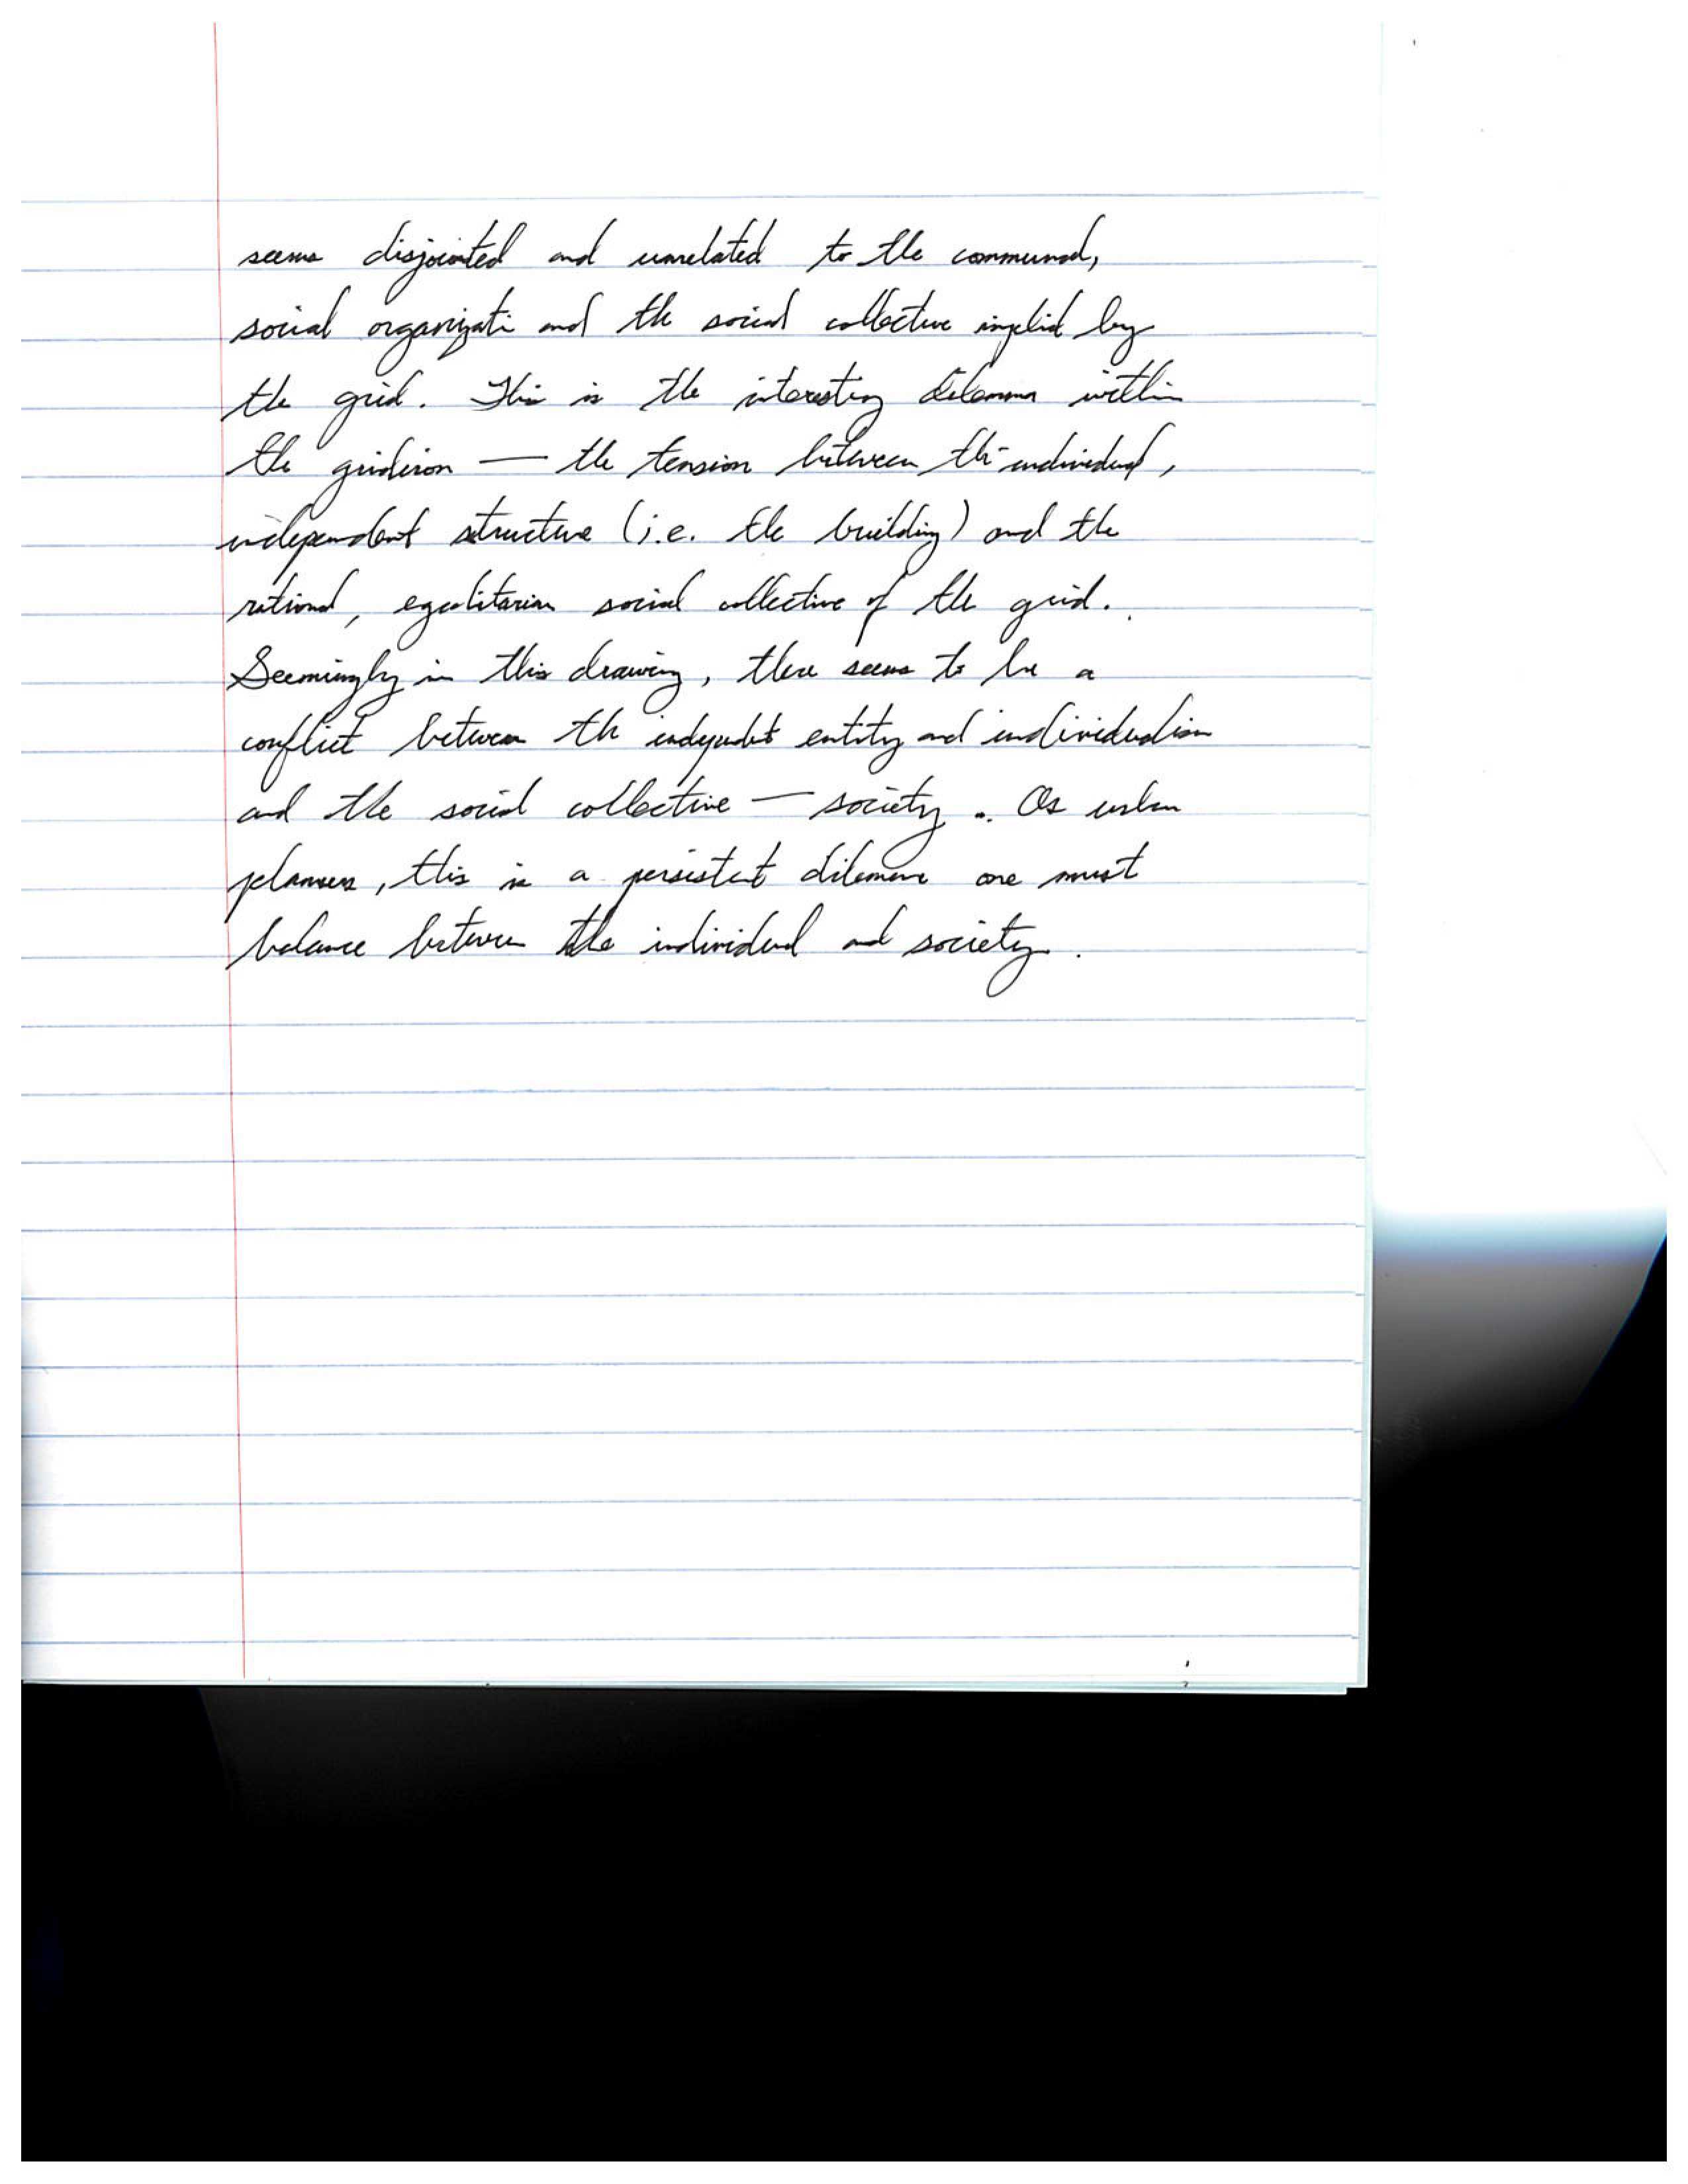 seems disjointed and unrelated to the communal,
social organizati and the social collective implied by
the grid. This is the interesting dilemma within
the gridiron — the tension between the individual,
independent structure (i.e. the building) and the
rational, egalitarian social collective of the grid.
Seemingly in this drawing, there seems to be a
conflict between the independent entity and individualism
and the social collective — society. As urban
planners, this is a persistent dilemma one must
balance between the individual and society.